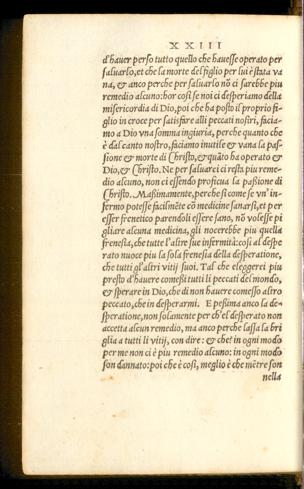 XXIII
d'hauer perso tutto quello che hauesse operato per
saluarlo, et che la morte del figlio per lui è stata va
na, & anco perche per saluarlo nō ci sarebbe piu
remedio alcuno: hor così se noi ci desperiamo della
misericordia di Dio, poi che ha posto il proprio fi-
glio in croce per satisfare alli peccati nostri, faccia-
mo a Dio vna somma ingiuria, perche quanto che
è dal canto nostro, faciamo inutile & vana la pas-
sione & morte di Christo, & quāto ha operato &
Dio, & Christo. Ne per saluarci ci resta piu reme-
dio alcuno, non ci essendo proficua la passione di
Christo. Massimamente, perche si come se vn'in-
fermo potesse facilmēte cō medicine sanarsi, et per
esser frenetico parendoli essere sano, nō volesse pi
gliare alcuna medicina, gli nocerebbe piu quella
frenesia, che tutte l'altre sue infermità: così al despe
rato nuoce piu la sola frenesia della desperatione,
che tutti gl'altri vitij suoi. Tal che eleggerei piu
presto d'hauere comessi tutti li peccati del mondo,
& sperare in Dio, che di non hauere comesso altro
peccato, che in desperarmi. E pessima anco la de-
speratione, non solamente per ch'el desperato non
accetta alcun remedio, ma anco perche lassa la bri
glia a tutti li vitij, con dire: & che? in ogni modo
per me non ci è piu remedio alcuno: in ogni modo
son dannato: poi che è così, meglio è che mētre son
nella